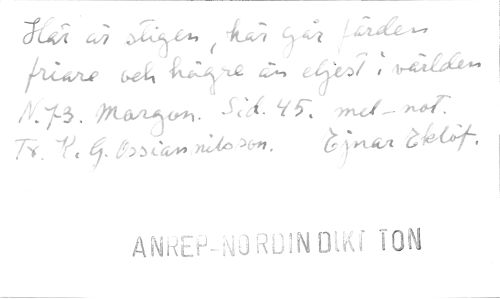 Här är stigen, här går färden
friare och högre än eljest i världen
N. 73. Morgon. Sid. 45. mel-not.
Tr. K. G. Ossiannilsson. Ejnar Eklöf.
ANREP-NORDIN DIKT TON